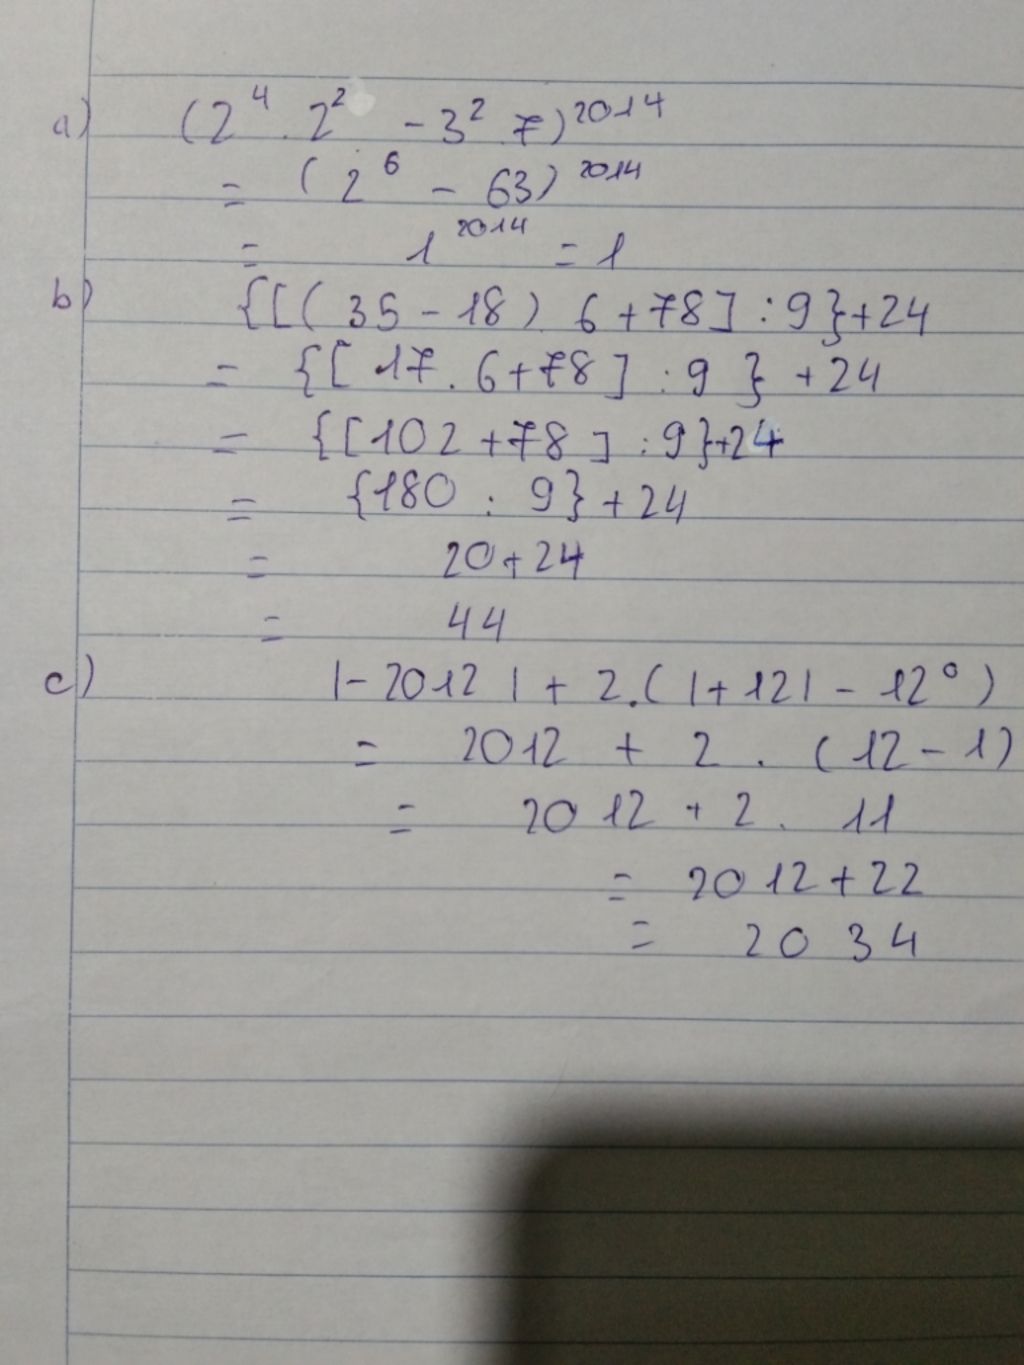 a) (2⁴ . 2² - 3² 7)²⁰¹⁴
= (2⁶ - 63)²⁰¹⁴
= 1²⁰¹⁴ = 1
b) {[(35 - 18) 6 + 78] : 9} + 24
= {[17 . 6 + 78] : 9} + 24
= {[102 + 78] : 9} + 24
= {180 : 9} + 24
= 20 + 24
= 44
c) |-2012| + 2.(|+12| - 12⁰)
= 2012 + 2 . (12 - 1)
= 2012 + 2 . 11
= 2012 + 22
= 2034